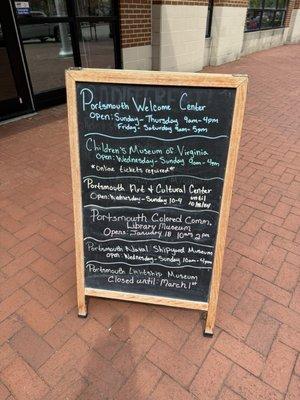 Portsmouth Welcome Center
Open: Sunday - Thursday 9am - 4pm
Friday - Saturday 9am - 5pm
Children's Museum of Virginia
Open: Wednesday - Sunday 9am - 4pm
*Online tickets required*
Portsmouth Art & Cultural Center
Open: Wednesday - Sunday 10-4 until
Portsmouth Colored Comm.
Library Museum
Opens: January 18 10am 2pm
Portsmouth Naval Shipyard Museum
Open: Wednesday - Sunday 10am - 4pm
Portsmouth Lightship Museum
Closed until: March 1st